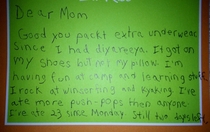 Dear Mom
Good you packt extra underwear
Since I had diyereeya. It got on
my shoes but not my pillow. I'm
having fun at camp and learning stuff.
I rock at winsorfing and kyaking. I've
ate more push-pops then anyone
I've ate 23 since Monday. Still two days left